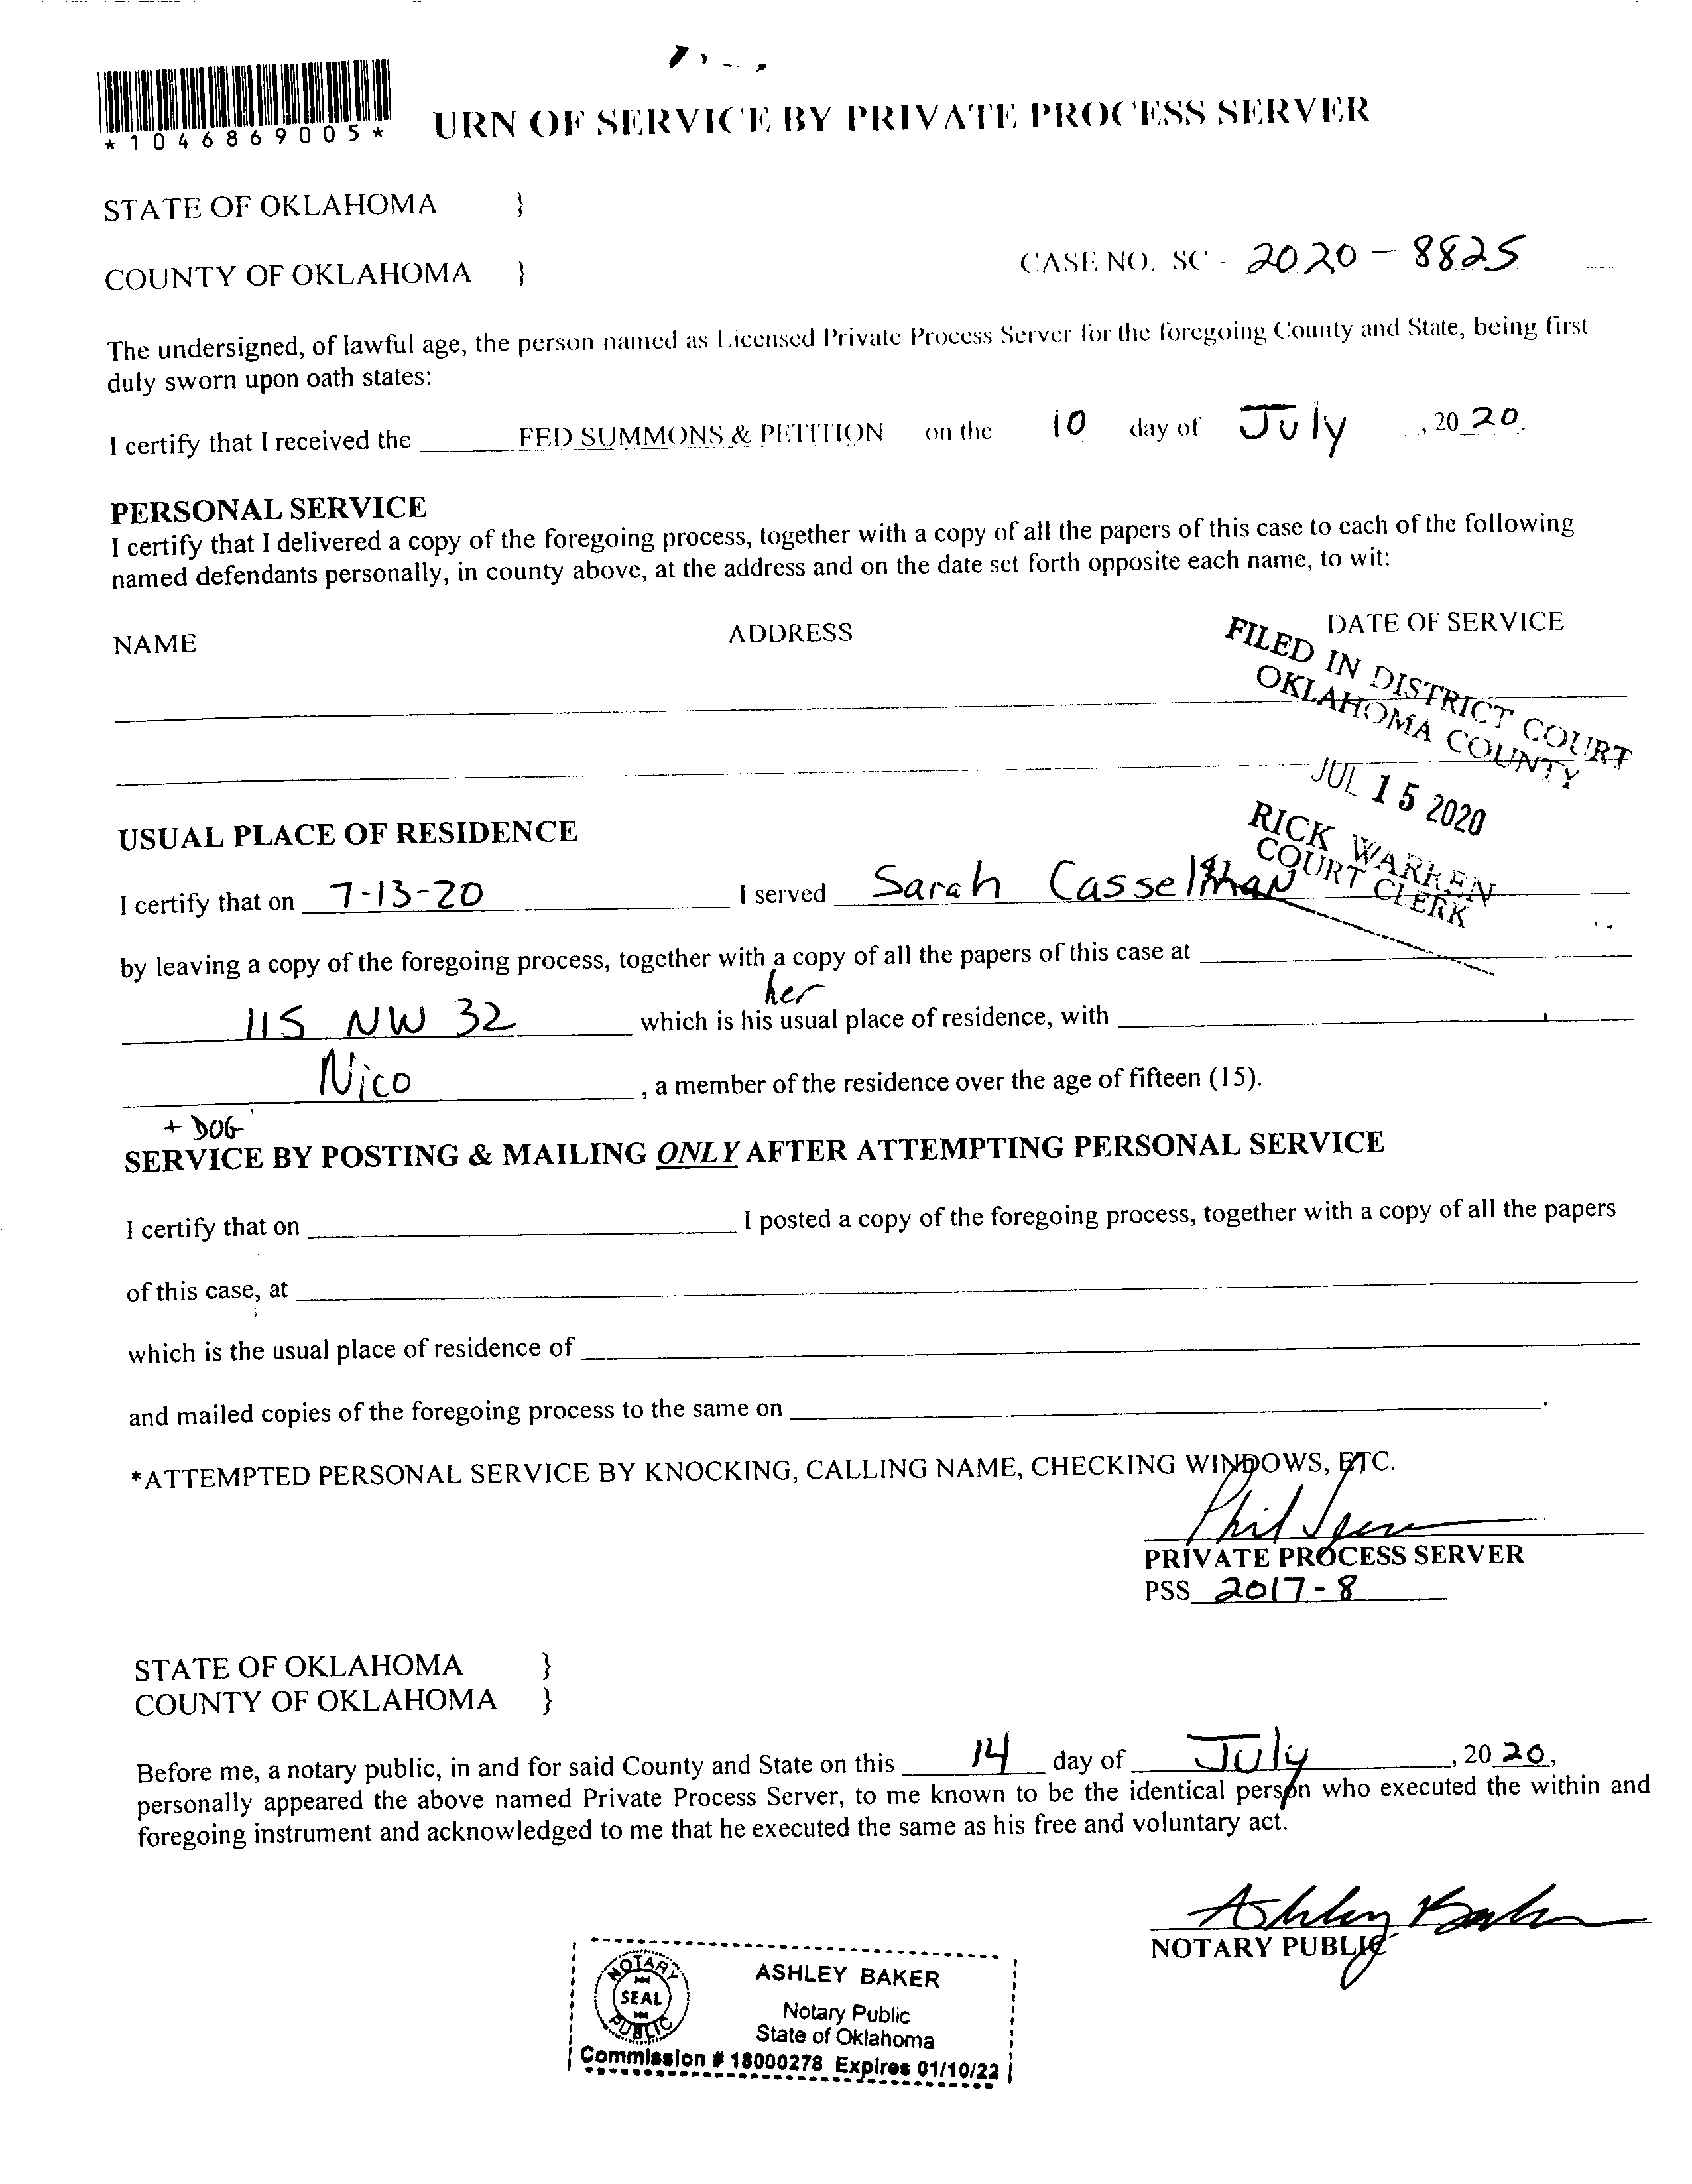 *1046869005*
URN OF SERVICE BY PRIVATE PROCESS SERVER
STATE OF OKLAHOMA }
COUNTY OF OKLAHOMA }
CASE NO. SC - 2020-8825
The undersigned, of lawful age, the person named as Licensed Private Process Server for the foregoing County and State, being first
duly sworn upon oath states:
I certify that I received the FED SUMMONS & PETITION on the 10 day of July , 20 20.
PERSONAL SERVICE
I certify that I delivered a copy of the foregoing process, together with a copy of all the papers of this case to each of the following
named defendants personally, in county above, at the address and on the date set forth opposite each name, to wit:
NAME ADDRESS DATE OF SERVICE
FILED IN DISTRICT COURT
OKLAHOMA COUNTY
JUL 15 2020
RICK WARREN
COURT CLERK
USUAL PLACE OF RESIDENCE
I certify that on 7-13-20 I served Sarah Casselman
by leaving a copy of the foregoing process, together with a copy of all the papers of this case at
her
115 NW 32 which is his usual place of residence, with
Nico , a member of the residence over the age of fifteen (15).
+ DOG
SERVICE BY POSTING & MAILING ONLY AFTER ATTEMPTING PERSONAL SERVICE
I certify that on I posted a copy of the foregoing process, together with a copy of all the papers
of this case, at
which is the usual place of residence of
and mailed copies of the foregoing process to the same on .
*ATTEMPTED PERSONAL SERVICE BY KNOCKING, CALLING NAME, CHECKING WINDOWS, ETC.
Phil
PRIVATE PROCESS SERVER
PSS 2017-8
STATE OF OKLAHOMA }
COUNTY OF OKLAHOMA }
Before me, a notary public, in and for said County and State on this 14 day of July , 20 20,
personally appeared the above named Private Process Server, to me known to be the identical person who executed the within and
foregoing instrument and acknowledged to me that he executed the same as his free and voluntary act.
Ashley Baker
NOTARY PUBLIC
NOTARY
SEAL
PUBLIC
ASHLEY BAKER
Notary Public
State of Oklahoma
Commission # 18000278 Expires 01/10/22